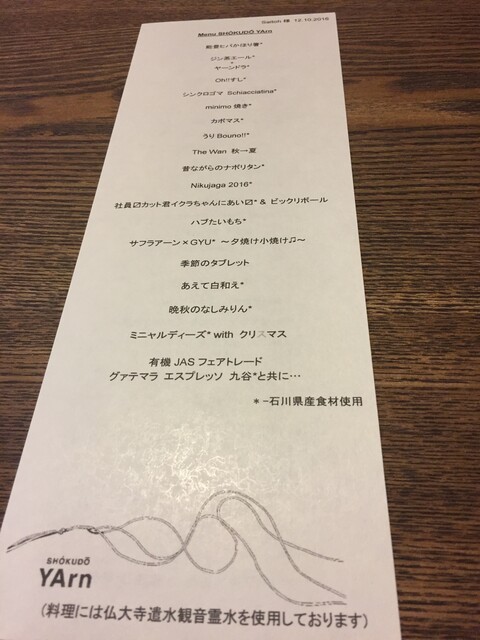 Switch 様 12.10.2016
Menu SHŌKUDŌ YArn
能登ヒバかほり箸*
ジン英エール*
+
ヤーンドラ*
Oh!!すし*
シンクロゴマ Schiacciatina*
minimo 焼き*
カボマス*
うり Bouno!!*
The Wan 秋→夏
昔ながらのナポリタン*
Nikujaga 2016*
社員〼カット君イクラちゃんにあい〼* & ビックリボール
ハブたいもち*
サフラアーン×GYU* ～夕焼け小焼け♫～
季節のタブレット
あえて白和え*
晩秋のなしみりん*
ミニャルディーズ* with クリスマス
有機 JAS フェアトレード
グァテマラ エスプレッソ 九谷*と共に…
* −石川県産食材使用
SHŌKUDŌ
YArn
(料理には仏大寺遣水観音霊水を使用しております)